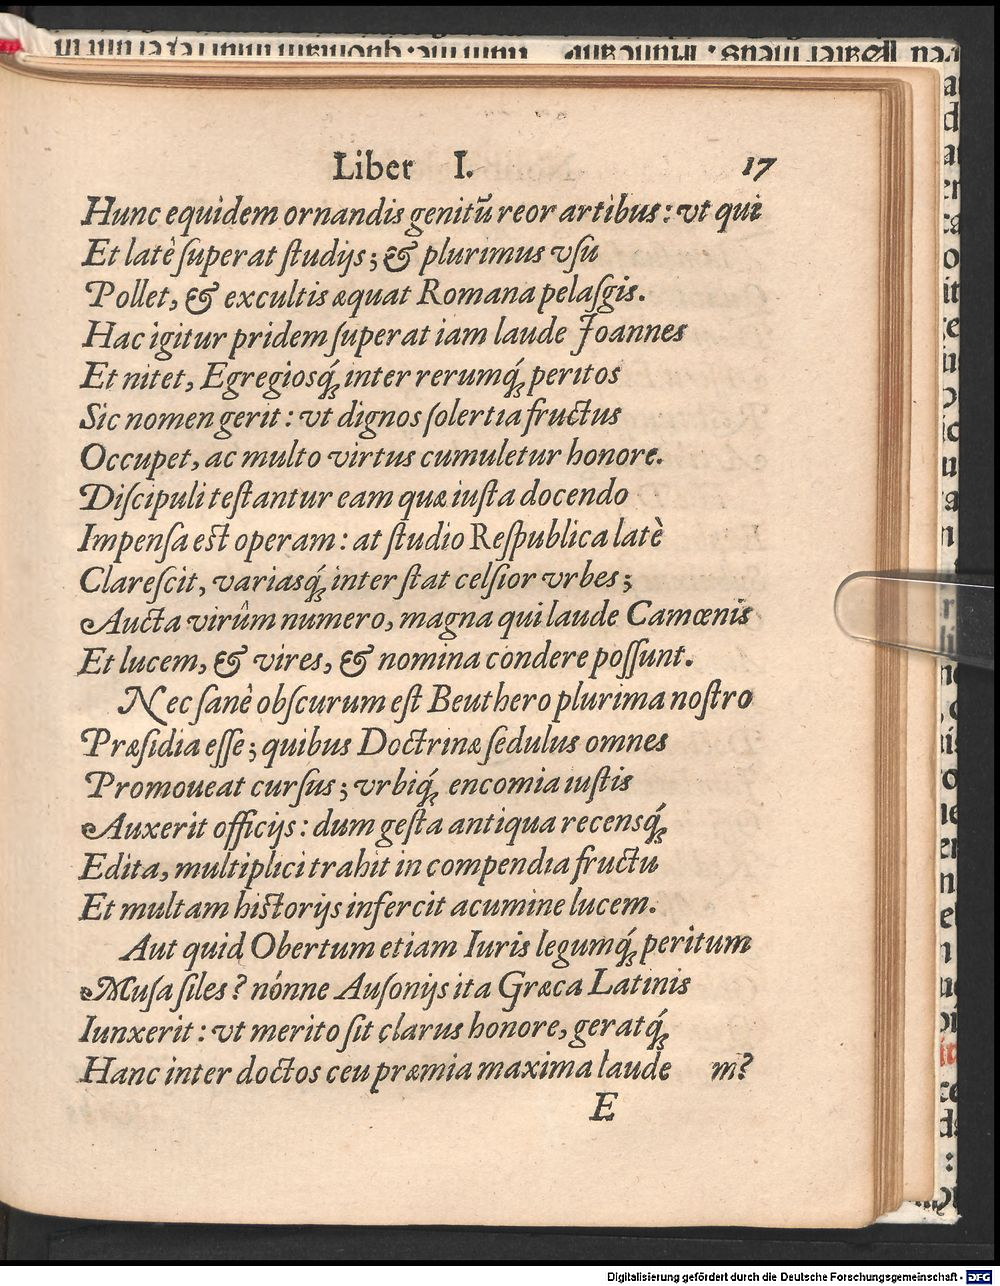 Liber I. 17
Hunc equidem ornandis genitū reor artibus: vt qui
Et latè ſuperat ſtudijs; & plurimus vſu
Pollet, & excultis æquat Romana pelaſgis.
Hac igitur pridem ſuperat iam laude Joannes
Et nitet, Egregiosq́; inter rerumq́; peritos
Sic nomen gerit: vt dignos ſolertia fructus
Occupet, ac multo virtus cumuletur honore.
Diſcipuli teſtantur eam quæ iuſta docendo
Impenſa est operam: at ſtudio Reſpublica latè
Clareſcit, variasq́; inter ſtat celſior vrbes;
Aucta virûm numero, magna qui laude Camœnis
Et lucem, & vires, & nomina condere poſſunt.
Nec ſanè obſcurum eſt Beuthero plurima noſtro
Præſidia eſſe; quibus Doctrinæ ſedulus omnes
Promoueat curſus; vrbiq́; encomia iuſtis
Auxerit officijs: dum geſta antiqua recensq́;
Edita, multiplici trahit in compendia fructu
Et multam historijs infercit acumine lucem.
Aut quid Obertum etiam Iuris legumq́; peritum
Muſa ſiles? nónne Auſonijs ita Græca Latinis
Iunxerit: vt merito ſit clarus honore, geratq́;
Hanc inter doctos ceu præmia maxima laude m?
E
Digitalisierung gefördert durch die Deutsche Forschungsgemeinschaft - DFG